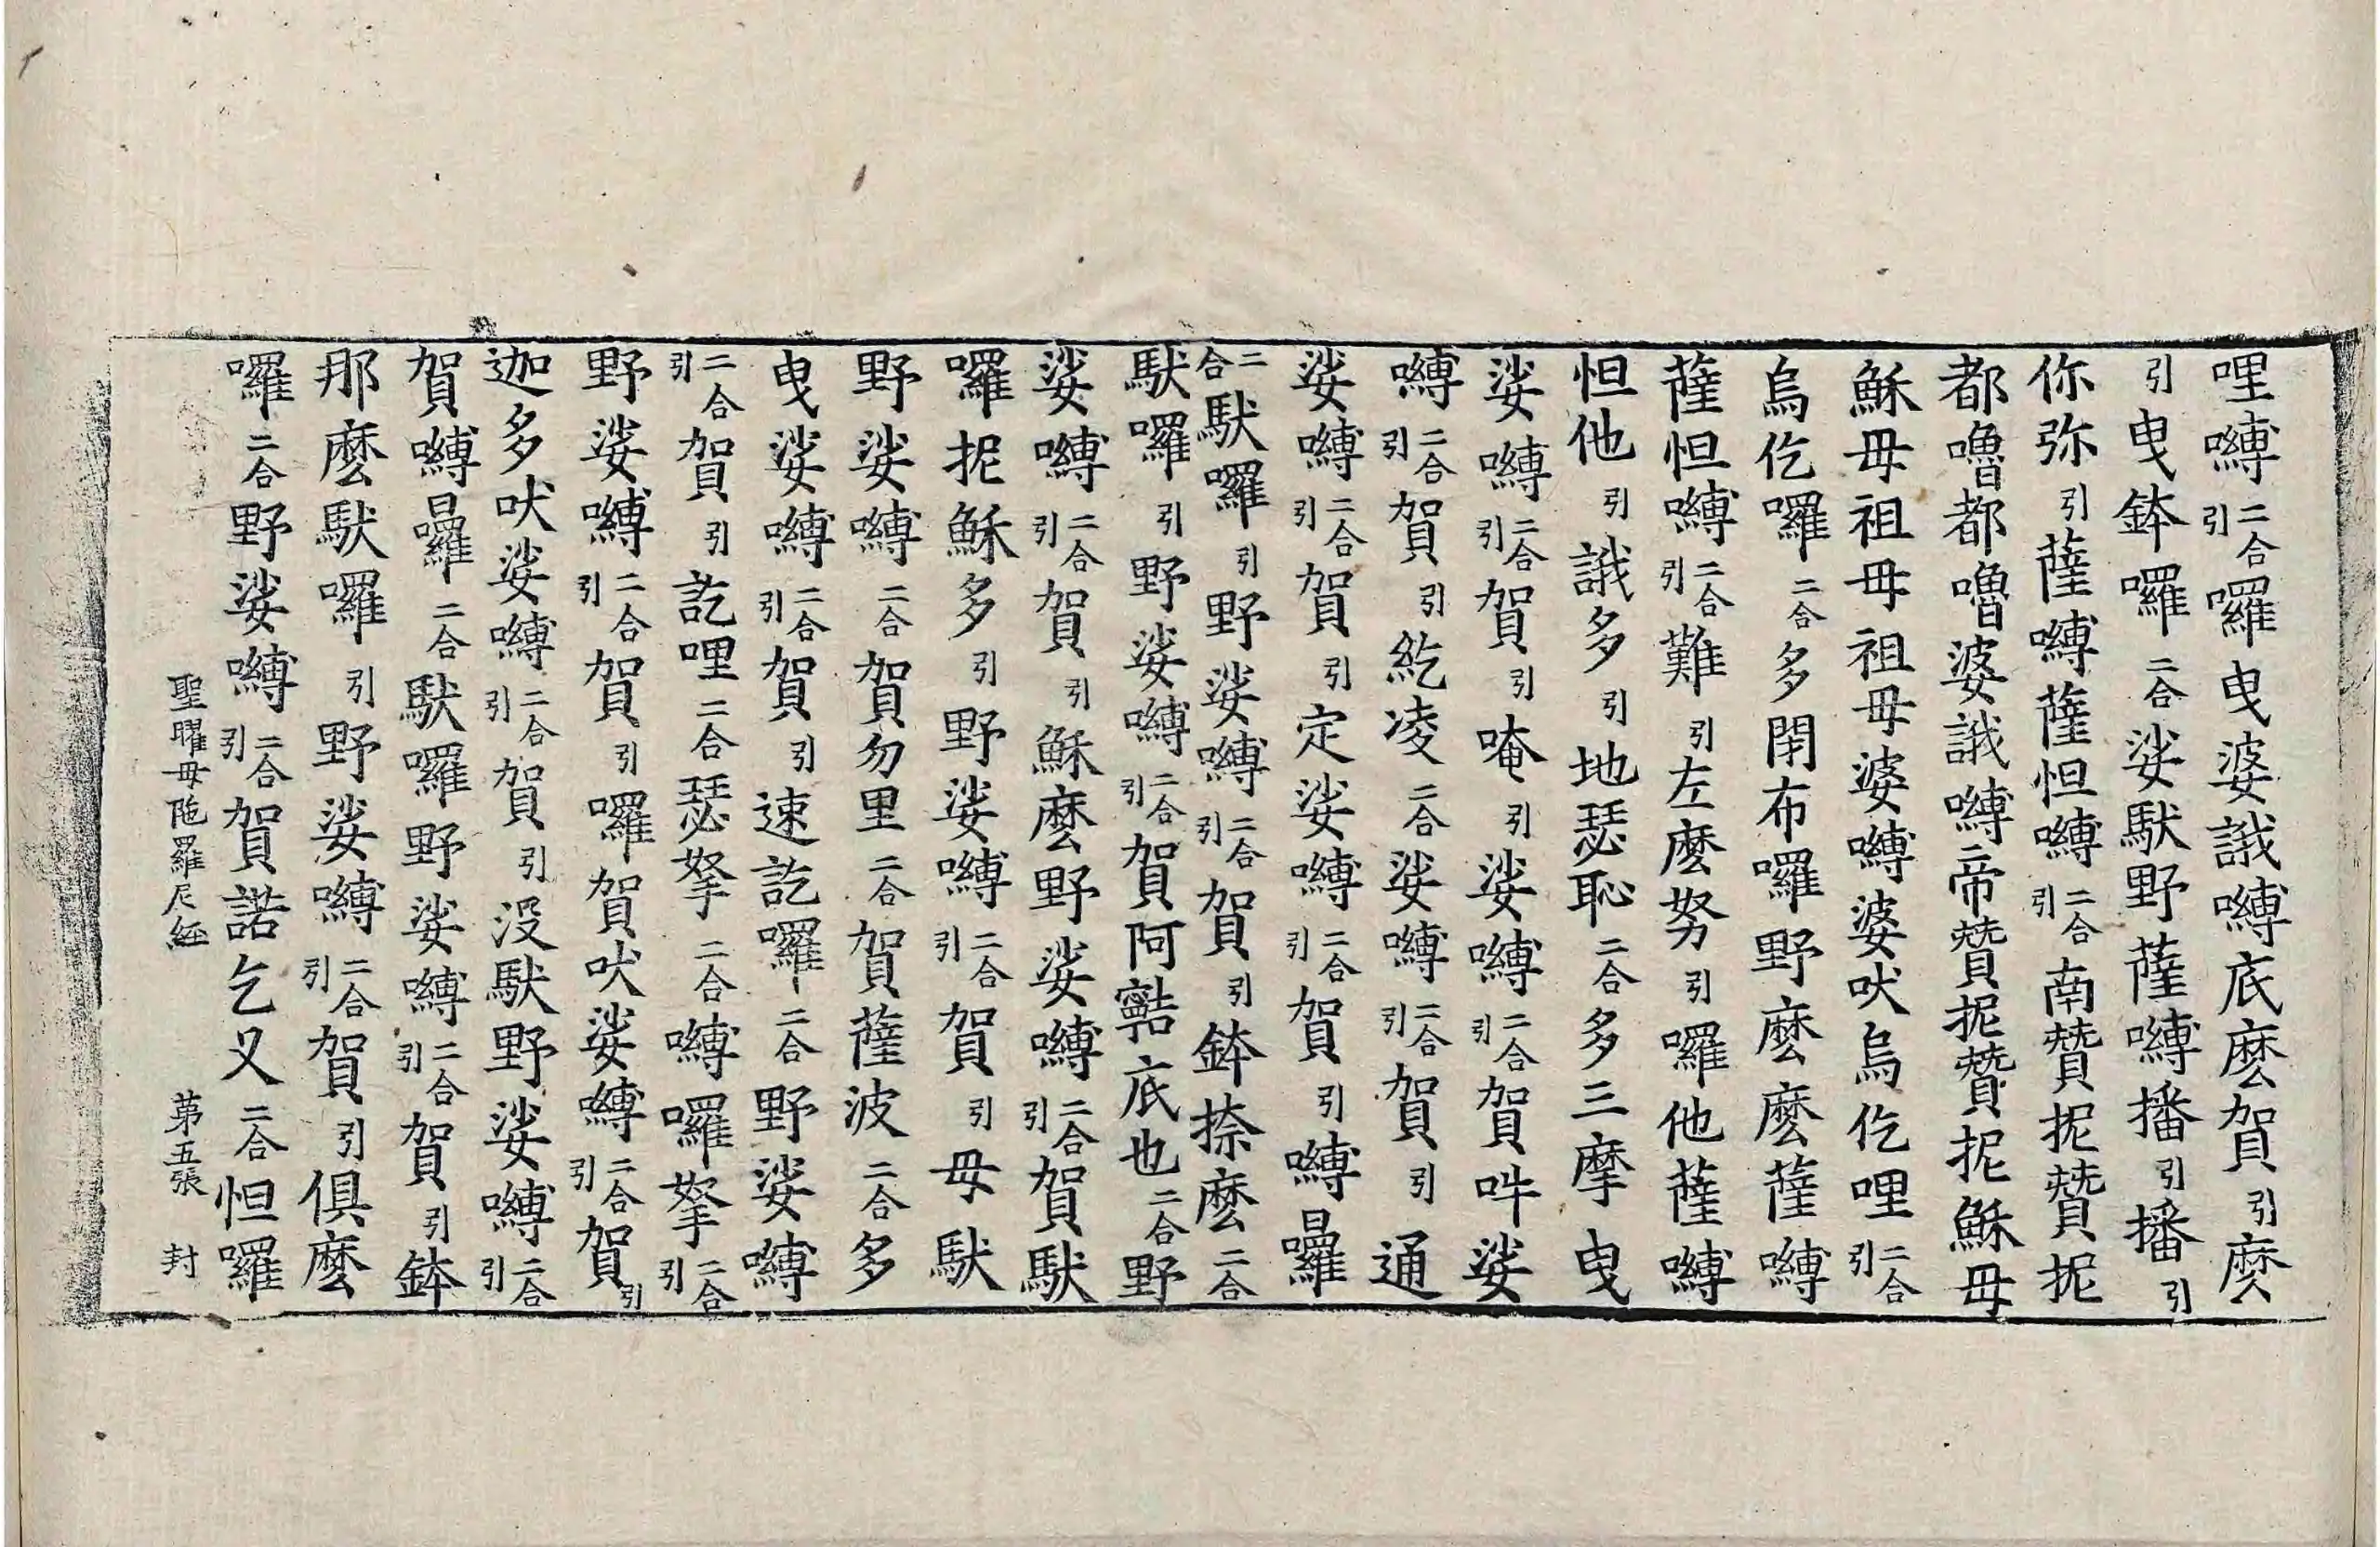 哩嚩二合引囉曳婆誐嚩底麽賀引麽
引曳鉢囉二合娑馱野薩嚩播引播引
你弥引薩嚩薩怛嚩二合引南贊抳贊抳
都嚕都嚕婆誐嚩帝贊抳贊抳穌母
穌母祖母祖母婆嚩婆吠烏仡哩二合引
烏仡囉二合多閉布囉野麽麽薩嚩
薩怛嚩二合引難引左麽努引囉他薩嚩
怛他引誐多引地瑟恥二合多三摩曳
娑嚩二合引賀引唵引娑嚩二合引賀吽娑
嚩二合引賀引紇凌二合娑嚩二合引賀引通
娑嚩二合引賀引定娑嚩二合引賀引嚩囉
二合馱囉引野娑嚩二合引賀引鉢捺麽二合
馱囉引野娑嚩二合引賀阿𩕳底也二合野
娑嚩二合引賀引穌麽野娑嚩二合引賀馱
囉抳穌多引野娑嚩二合引賀引母馱
野娑嚩二合賀勿里二合賀薩波二合多
曳娑嚩二合引賀引速訖囉二合野娑嚩
二合引賀引訖哩二合瑟拏二合嚩囉拏二合引
野娑嚩二合引賀引囉賀吠娑嚩二合引賀引
迦多吠娑嚩二合引賀引没馱野娑嚩二合引
賀嚩囉二合馱囉野娑嚩二合引賀引鉢
那麽馱囉引野娑嚩二合引賀引俱麽
囉二合野娑嚩二合引賀諾乞叉二合怛囉
聖曜母陁羅尼経 第五張 封